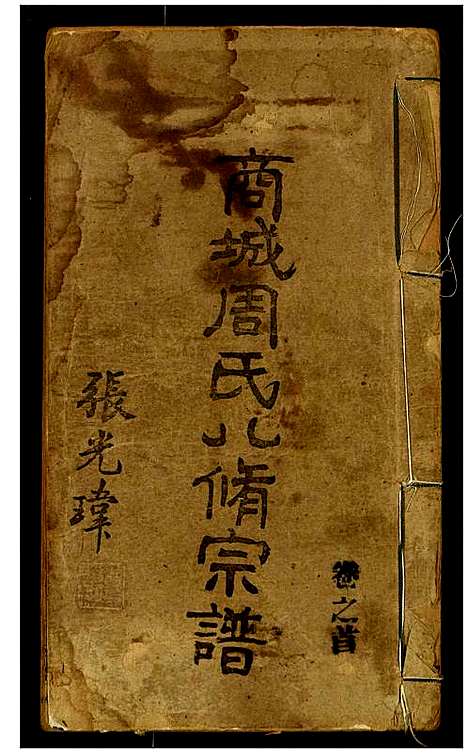 卷之首
商城周氏八修宗譜
張光瑋